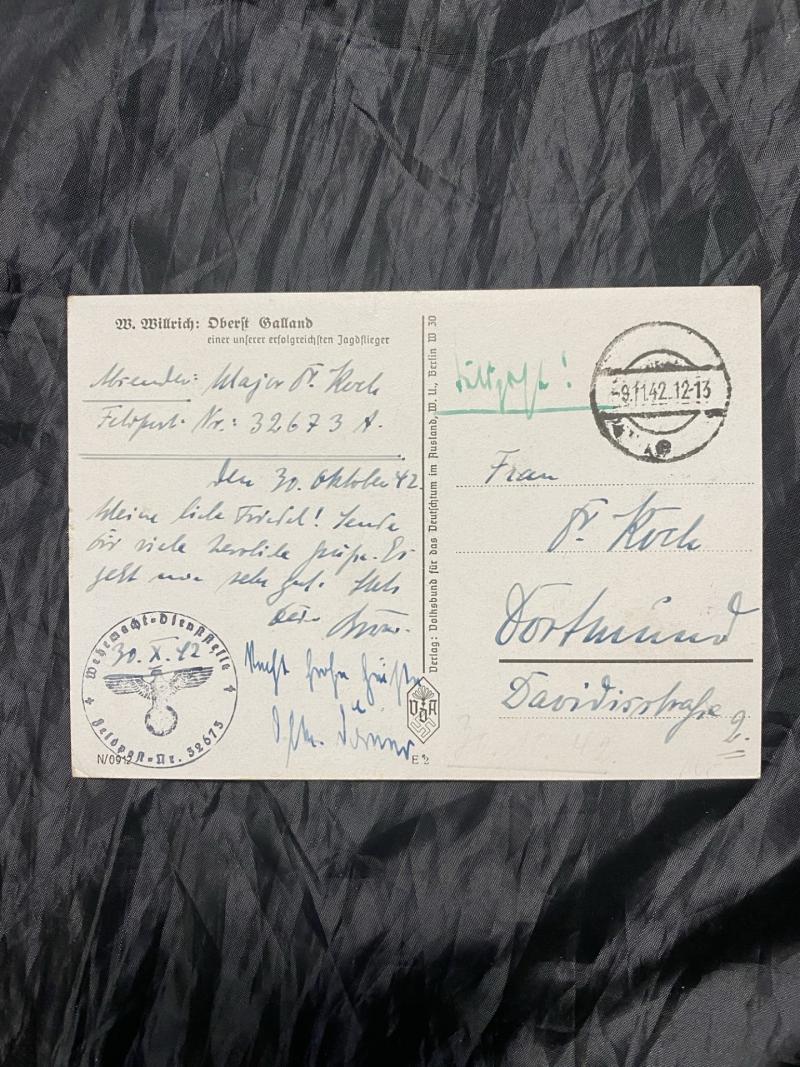 W. Willrich: Oberst Galland
einer unserer erfolgreichsten Jagdflieger
Absender: Major Dr. Koch
Feldpost-Nr.: 32673 A.
den 30. Oktober 42.
Meine liebe Friedel! Sende
Dir viele herzliche Grüße. Es
geht mir sehr gut. Stets
Dein
Recht frohe Grüße
Wehrmacht-Dienststelle
30. X. 42
Feldpost-Nr. 32673
N/0912
Verlag: Volksbund für das Deutschtum im Ausland, W. U., Berlin W 30
VDA
E 2
Feldpost!
-9.11.42.12-13
Frau
Dr. Koch
Dortmund
Davidisstraße
2.